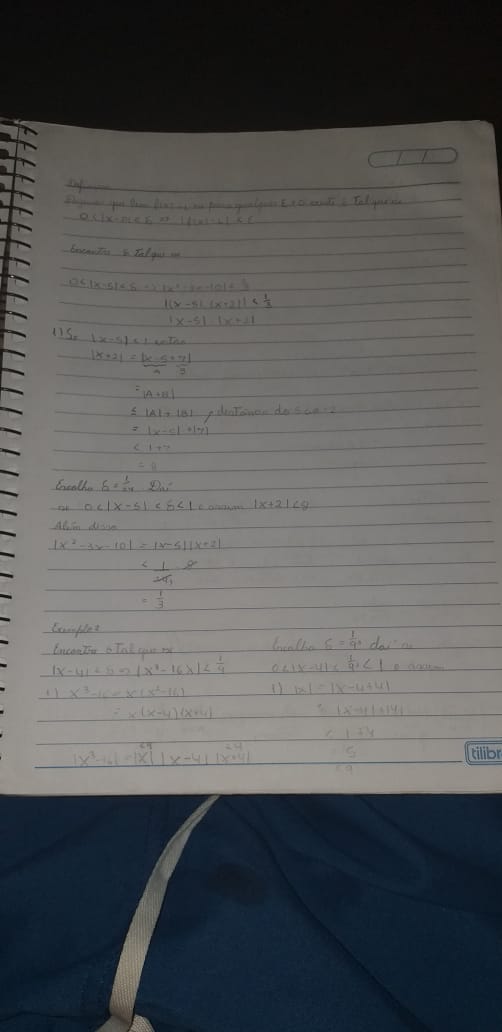 Definição
Dizemos que lim f(x) = L se para qualquer ε > 0 existe δ Tal que se
0 < |x - a| < δ ⇒ |f(x) - L| < ε
Encontre δ Tal que se
0 < |x-5| < δ ⇒ |x² - 3x - 10| < 1/3
|(x-5) (x+2)| < 1/3
|x-5| |x+2|
1) Se |x-5| < 1 então
|x+2| = |x-5+7|
A B
= |A+B|
≤ |A| + |B|
= |x-5| + |7|
< 1+7
= 8
Escolha δ = 1/24 Daí
se 0 < |x-5| < δ < 1 e assim |x+2| < 8
Além disso
|x² - 3x - 10| = |x-5| |x+2|
< 1/24 8
= 1/3
Exemplo 2
Encontre δ Tal que se
|x-4| < δ ⇒ |x³ - 16x| < 1/9
1) x³ - 16 = x (x² - 16)
= x (x-4) (x+4)
|x³ - 16| = |x| |x-4| |x+4|
Escolha δ = 1/9³ daí se
0 < |x-4| < 1/9³ < 1 e assim
1) |x| = |x-4+4|
≤ |x-4| + |4|
< 1+4
5
< 9
tilibra